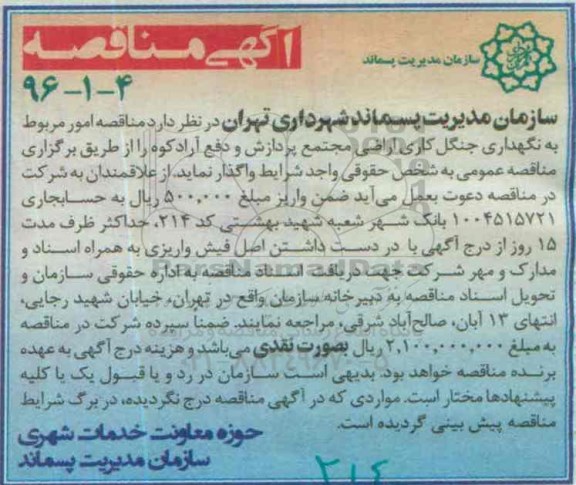 آگهی مناقصه
سازمان مدیریت پسماند
۹۶-۱-۴
سازمان مدیریت پسماند شهرداری تهران در نظر دارد مناقصه امور مربوط
به نگهداری جنگل کاری اراضی مجتمع پردازش و دفع آرادکوه را از طریق برگزاری
مناقصه عمومی به شخص حقوقی واجد شرایط واگذار نماید. از علاقمندان به شرکت
در مناقصه دعوت بعمل می آید ضمن واریز مبلغ ۵۰۰,۰۰۰ ریال به حسابجاری
۱۰۰۴۵۱۵۷۲۱ بانک شهر شعبه شهید بهشتی کد ۲۱۴، حداکثر ظرف مدت
۱۵ روز از درج آگهی با در دست داشتن اصل فیش واریزی به همراه اسناد و
مدارک و مهر شرکت جهت دریافت اسناد مناقصه به اداره حقوقی سازمان و
تحویل اسناد مناقصه به دبیرخانه سازمان واقع در تهران، خیابان شهید رجایی،
انتهای ۱۳ آبان، صالح آباد شرقی، مراجعه نمایند. ضمنا سپرده شرکت در مناقصه
به مبلغ ۲,۱۰۰,۰۰۰,۰۰۰ ریال بصورت نقدی می باشد و هزینه درج آگهی به عهده
برنده مناقصه خواهد بود. بدیهی است سازمان در رد و یا قبول یک یا کلیه
پیشنهادها مختار است. مواردی که در آگهی مناقصه درج نگردیده، در برگ شرایط
مناقصه پیش بینی گردیده است.
حوزه معاونت خدمات شهری
سازمان مدیریت پسماند
۲۱۴